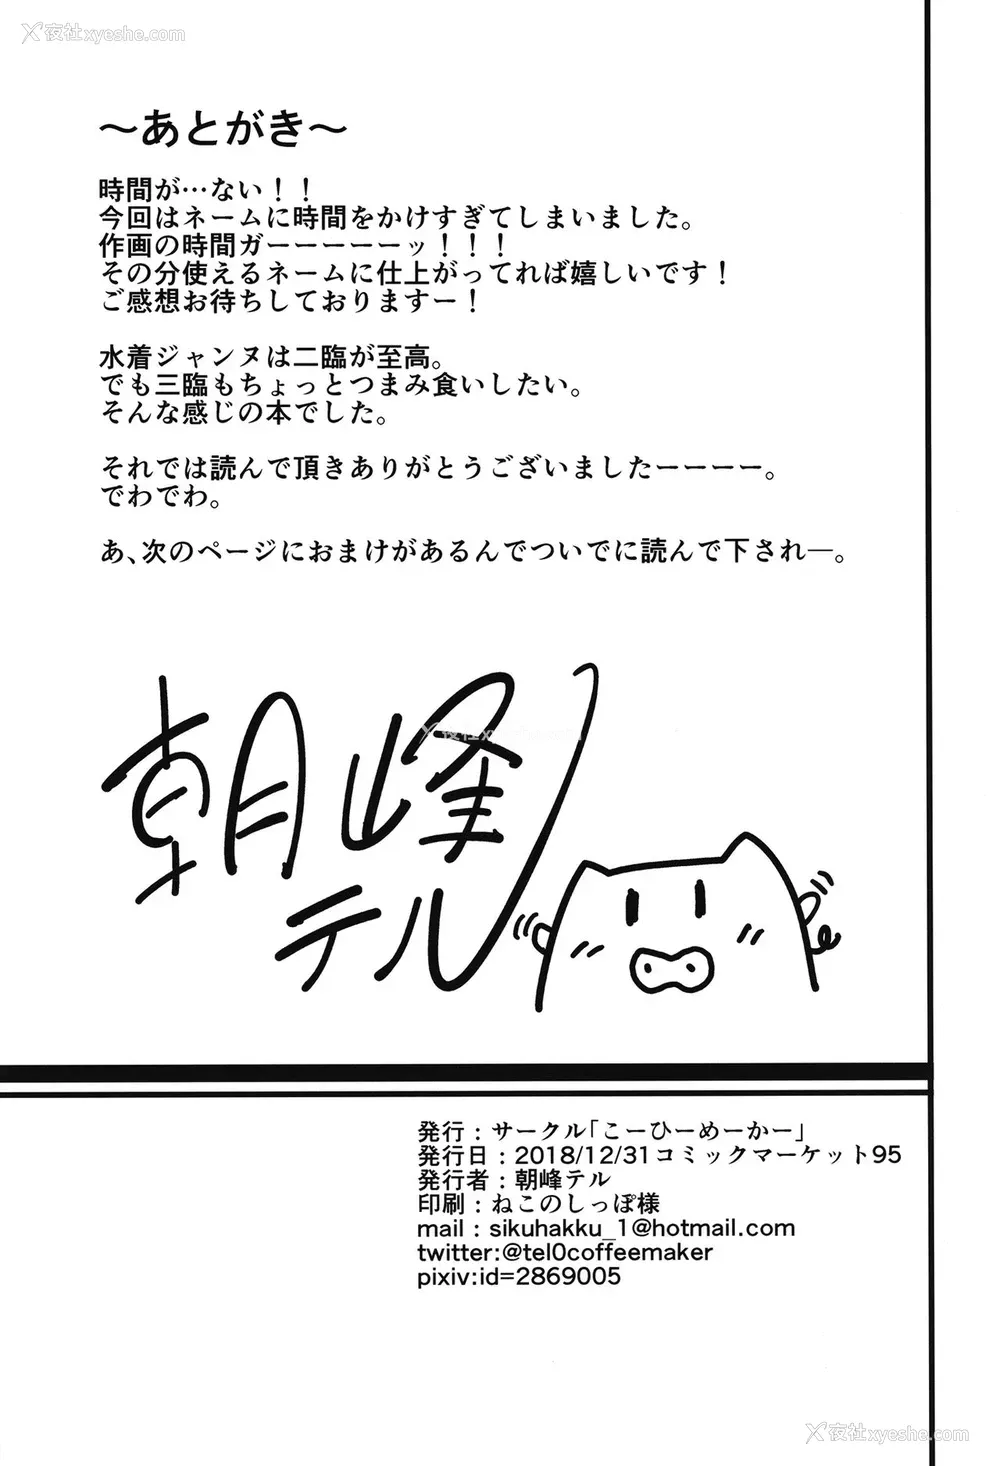 夜社xyeshe.com
～あとがき～
時間が…ない！！
今回はネームに時間をかけすぎてしまいました。
作画の時間ガーーーーーッ！！！
その分使えるネームに仕上がってれば嬉しいです！
ご感想お待ちしておりますー！
水着ジャンヌは二臨が至高。
でも三臨もちょっとつまみ食いしたい。
そんな感じの本でした。
それでは読んで頂きありがとうございましたーーーー。
でわでわ。
あ、次のページにおまけがあるんでついでに読んで下され―。
夜社xyeshe.com
朝峰
テル
発行：サークル「こーひーめーかー」
発行日：2018/12/31コミックマーケット95
発行者：朝峰テル
印刷：ねこのしっぽ様
mail：sikuhakku_1@hotmail.com
twitter:@tel0coffeemaker
pixiv:id=2869005
夜社xyeshe.com